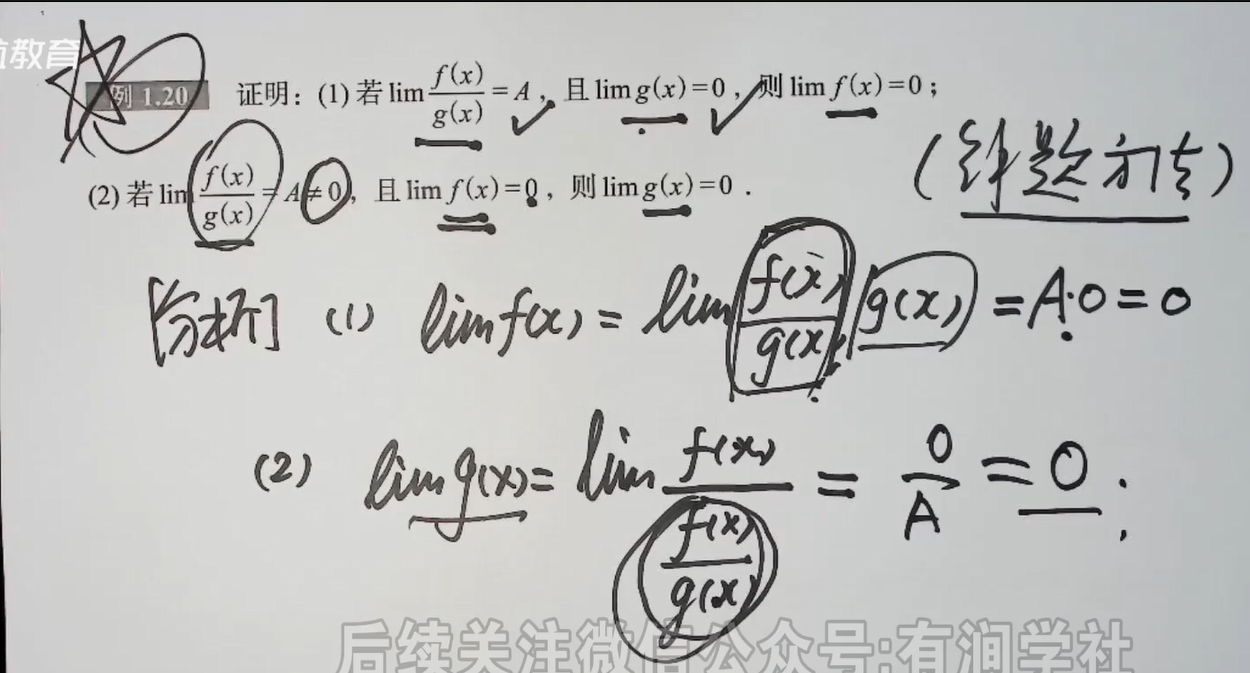 航教育
例 1.20 证明：(1) 若 lim f(x)/g(x) = A，且 lim g(x)=0，则 lim f(x)=0；
(2) 若 lim f(x)/g(x) = A≠0，且 lim f(x)=0，则 lim g(x)=0．
(解题方法)
[分析] (1) lim f(x) = lim f(x)/g(x) · g(x) = A·0 = 0
(2) lim g(x) = lim f(x)/(f(x)/g(x)) = 0/A = 0；
后续关注微信公众号:有涧学社